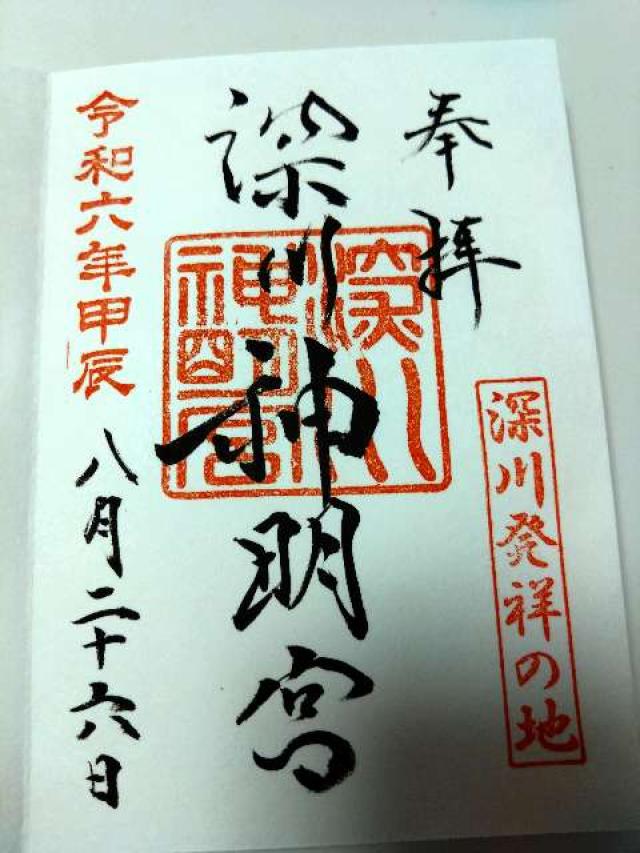 奉拝
深川発祥の地
深川神明宮
深川
神明宮
令和六年甲辰
八月二十六日